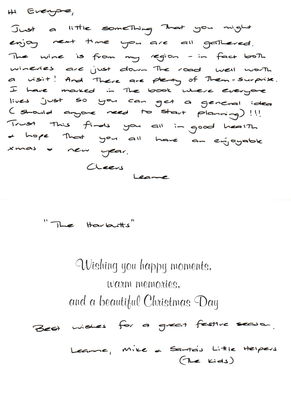 Hi Everyone,
Just a little something that you might
enjoy next time you are all gathered.
The wine is from my region - in fact both
wineries are just down the road well worth
a visit! And there are plenty of them - surprise.
I have marked in the book where everyone
lives just so you can get a general idea
(should anyone need to start planning)!!!
Trust this finds you all in good health
+ hope that you all have an enjoyable
xmas + new year.
Cheers
Leanne
"The Harbutts"
Wishing you happy moments,
warm memories,
and a beautiful Christmas Day
Best wishes for a great festive season.
Leanne, Mike + Santa's Little Helpers
(The Kids)